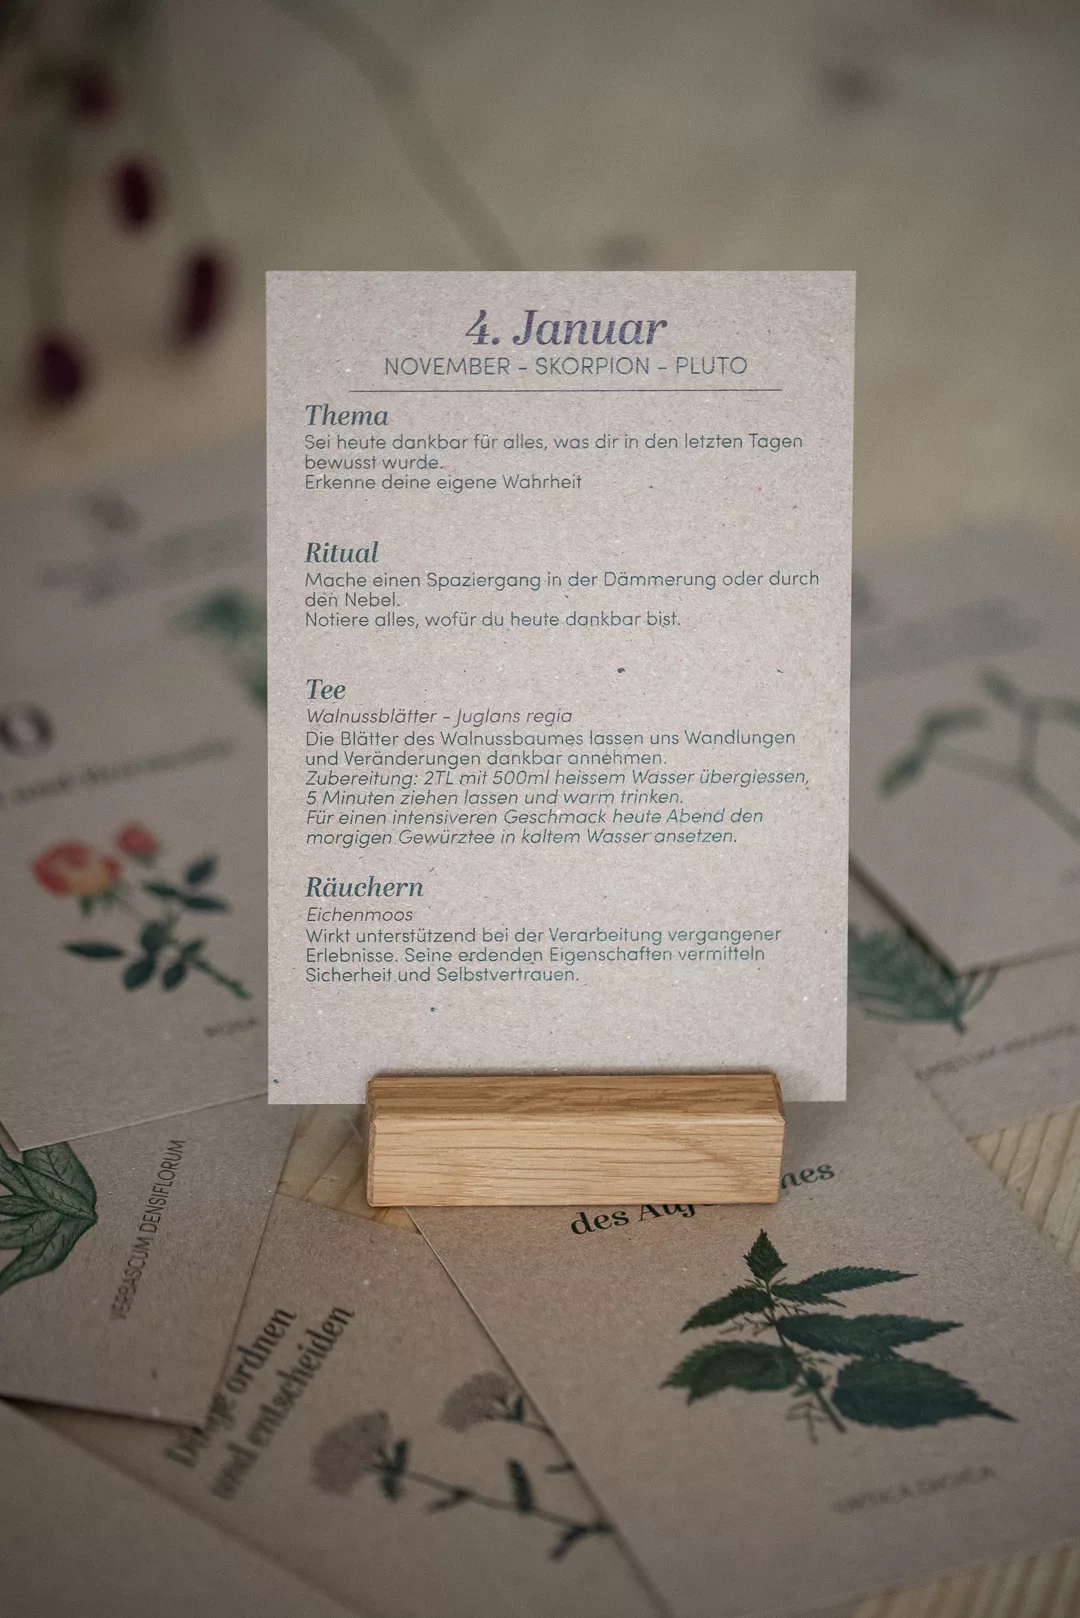 4. Januar
NOVEMBER - SKORPION - PLUTO
Thema
Sei heute dankbar für alles, was dir in den letzten Tagen
bewusst wurde.
Erkenne deine eigene Wahrheit
Ritual
Mache einen Spaziergang in der Dämmerung oder durch
den Nebel.
Notiere alles, wofür du heute dankbar bist.
Tee
Walnussblätter - Juglans regia
Die Blätter des Walnussbaumes lassen uns Wandlungen
und Veränderungen dankbar annehmen.
Zubereitung: 2TL mit 500ml heissem Wasser übergiessen,
5 Minuten ziehen lassen und warm trinken.
Für einen intensiveren Geschmack heute Abend den
morgigen Gewürztee in kaltem Wasser ansetzen.
Räuchern
Eichenmoos
Wirkt unterstützend bei der Verarbeitung vergangener
Erlebnisse. Seine erdenden Eigenschaften vermitteln
Sicherheit und Selbstvertrauen.
VERBASCUM DENSIFLORUM
ordnen
und entscheiden
des
URTICA DIOICA